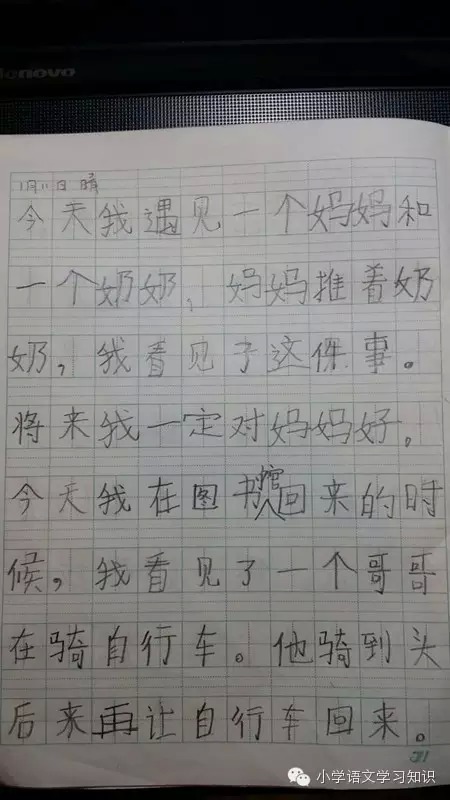 lenovo
1月11日 晴
今天我遇见一个妈妈和
一个奶奶，妈妈推着奶
奶，我看见了这件事。
将来我一定对妈妈好。
今天我在图书馆回来的时
候，我看见了一个哥哥
在骑自行车。他骑到头
后来再让自行车回来。
小学语文学习知识